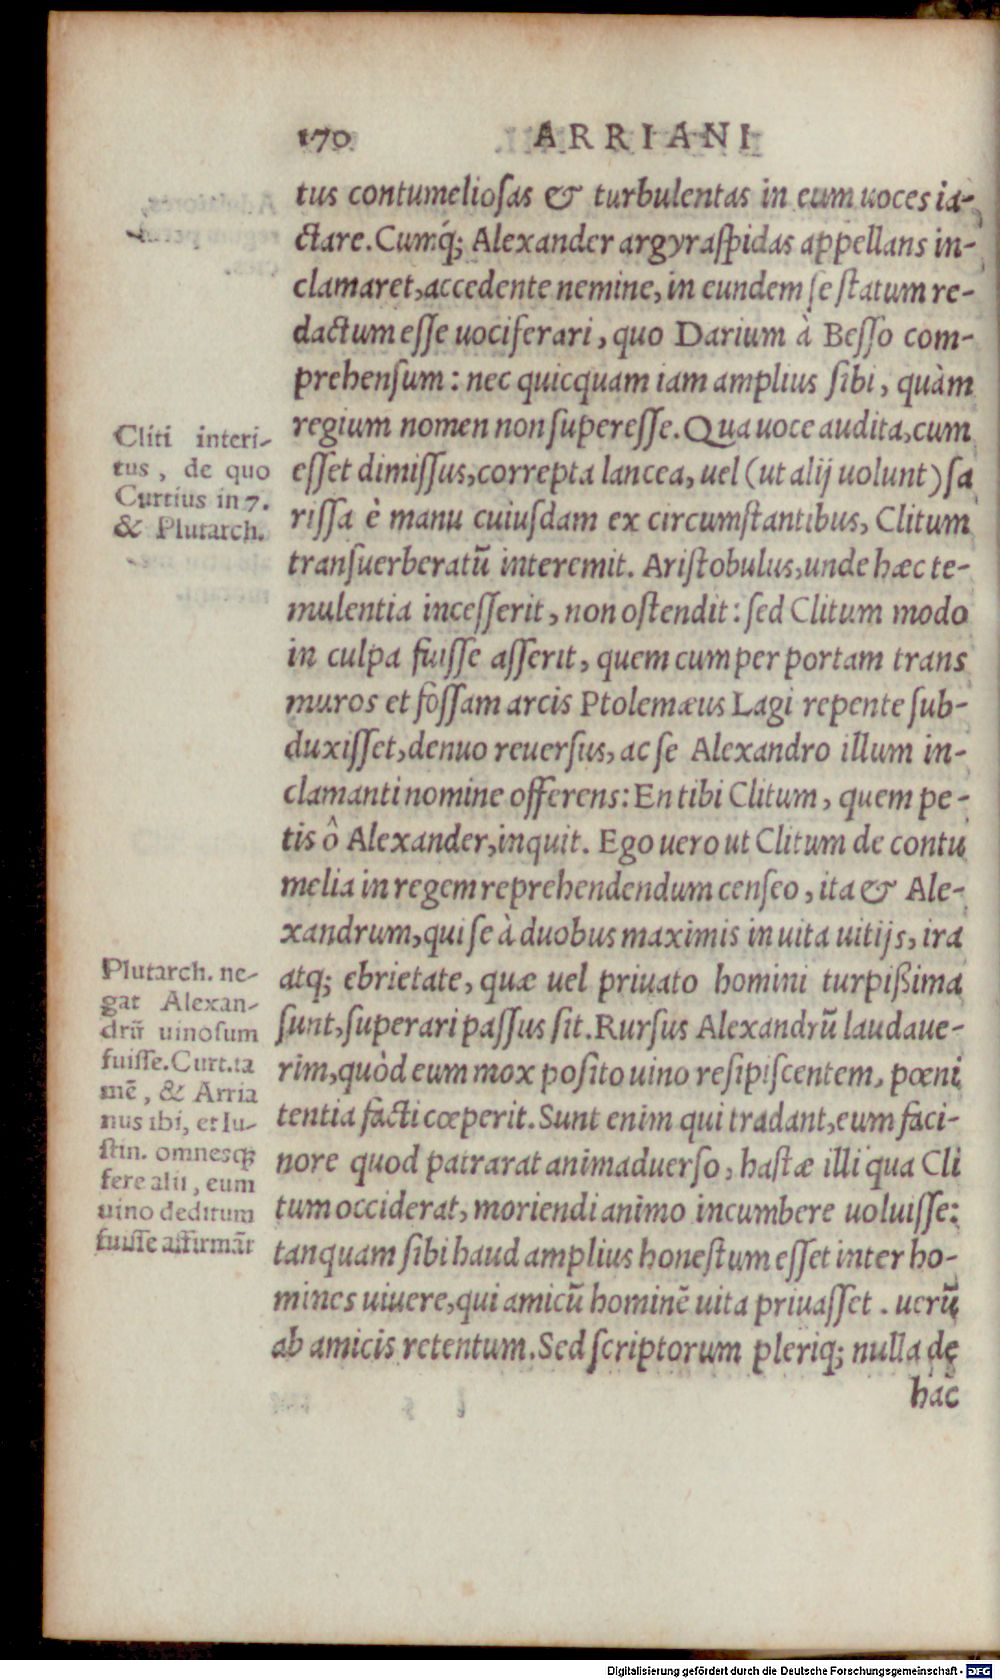 170 ARRIANI
tus contumeliosas & turbulentas in eum uoces ia-
ctare. Cumq́; Alexander argyraspidas appellans in-
clamaret, accedente nemine, in eundem se statum re-
dactum esse uociferari, quo Darium à Besso com-
prehensum: nec quicquam iam amplius sibi, quàm
regium nomen non superesse. Qua uoce audita, cum
esset dimissus, correpta lancea, uel (ut alij uolunt) sa
rissa è manu cuiusdam ex circumstantibus, Clitum
transuerberatū interemit. Aristobulus, unde hæc te-
mulentia incesserit, non ostendit: sed Clitum modo
in culpa fuisse asserit, quem cum per portam trans
muros et fossam arcis Ptolemæus Lagi repente sub-
duxisset, denuo reuersus, ac se Alexandro illum in-
clamanti nomine offerens: En tibi Clitum, quem pe-
tis ô Alexander, inquit. Ego uero ut Clitum de contu
melia in regem reprehendendum censeo, ita & Ale-
xandrum, qui se à duobus maximis in uita uitijs, ira
atq; ebrietate, quæ uel priuato homini turpißima
sunt, superari passus sit. Rursus Alexandrū laudaue-
rim, quòd eum mox posito uino resipiscentem, pœni
tentia facti cœperit. Sunt enim qui tradant, eum faci-
nore quod patrarat animaduerso, hastæ illi qua Cli
tum occiderat, moriendi animo incumbere uoluisse:
tanquam sibi haud amplius honestum esset inter ho-
mines uiuere, qui amicū hominē uita priuasset. uerū
ab amicis retentum. Sed scriptorum pleriq; nulla de
hac
Cliti interi-
tus, de quo
Curtius in 7.
& Plutarch.
Plutarch. ne-
gat Alexan-
drū uinosum
fuisse. Curt. ta
mē, & Arria
nus ibi, et Iu-
stin. omnesq;
fere alii, eum
uino deditum
fuisse affirmāt
Digitalisierung gefördert durch die Deutsche Forschungsgemeinschaft - DFG